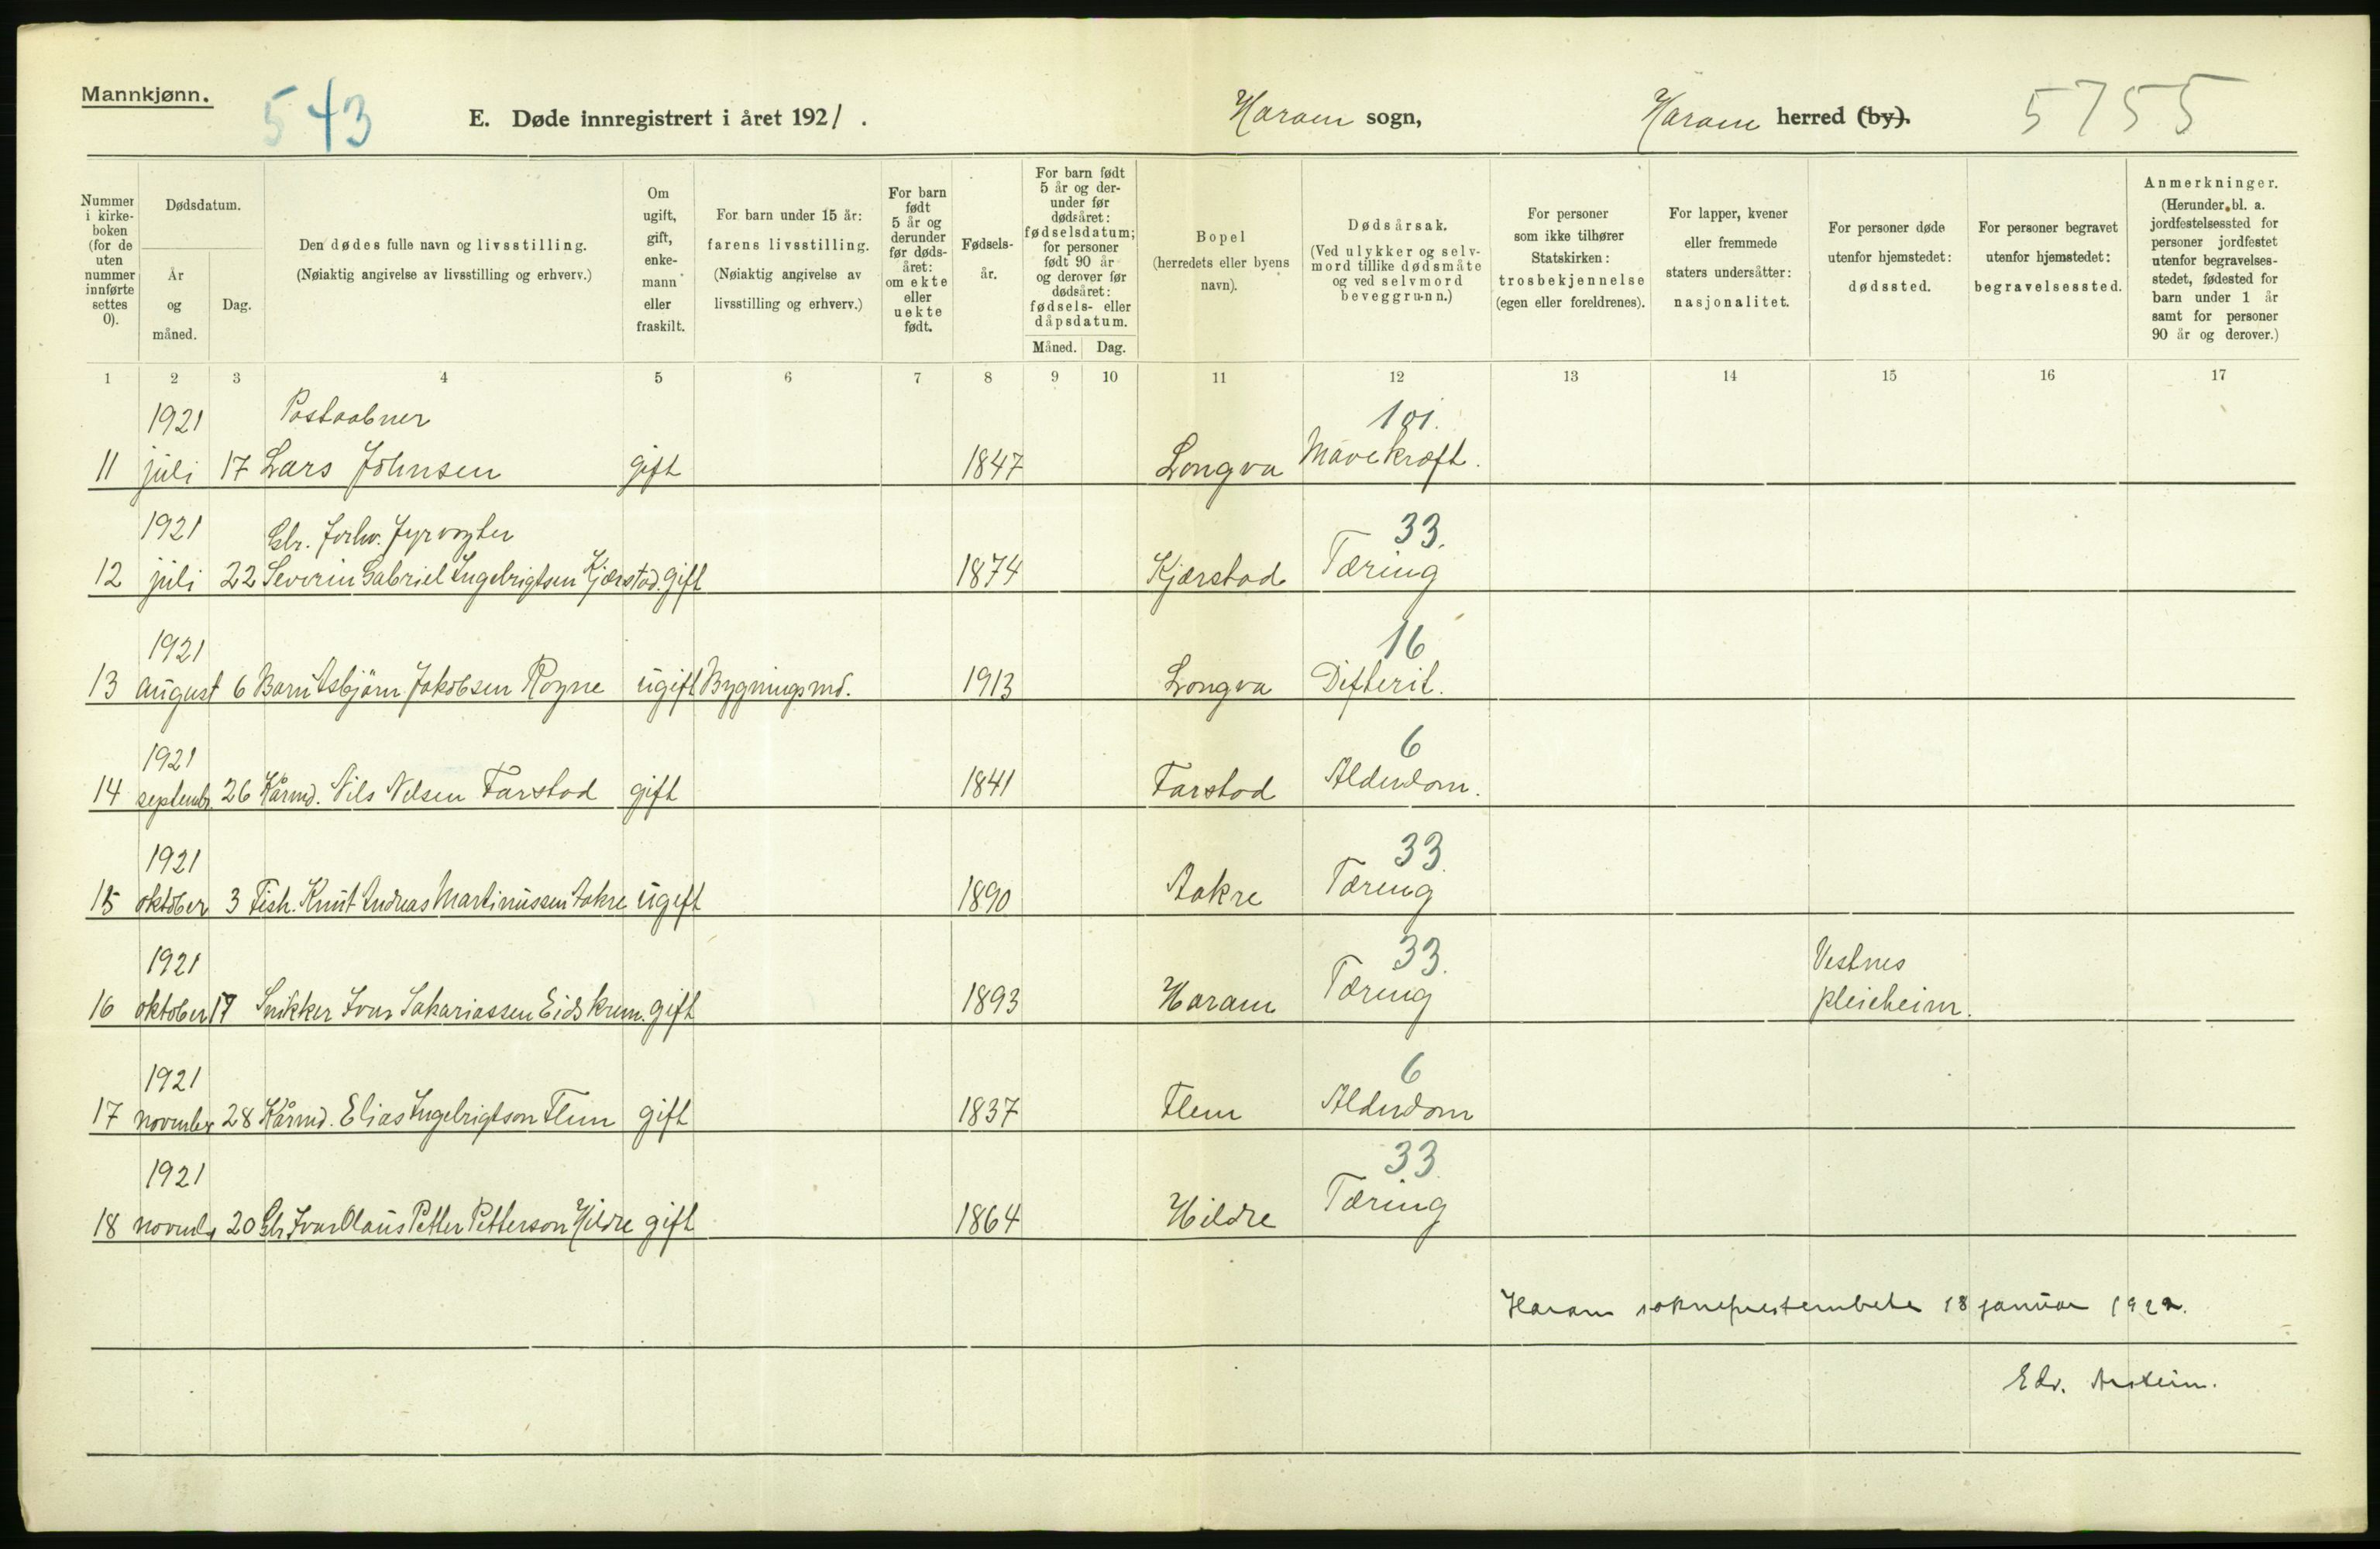 Mannkjønn.
543
E. Døde innregistrert i året 1921.
Haram sogn,
Haram herred (by).
5755
Nummer i kirke- boken (for de uten nummer innførte settes 0).
Dødsdatum.
År og måned.
Dag.
Den dødes fulle navn og livsstilling.
(Nøiaktig angivelse av livsstilling og erhverv.)
Om ugift, gift, enke- mann eller fraskilt.
For barn under 15 år:
farens livsstilling.
(Nøiaktig angivelse av livsstilling og erhverv.)
For barn født 5 år og derunder før døds- året: om ekte eller uekte født.
Fødsels- år.
For barn født 5 år og der- under før dødsåret: fødselsdatum; for personer født 90 år og derover før dødsåret: fødsels- eller dåpsdatum.
Måned. Dag.
Bopel
(herredets eller byens navn).
Dødsårsak.
(Ved ulykker og selv- mord tillike dødsmåte og ved selvmord beveggrunn.)
For personer som ikke tilhører Statskirken: trosbekjennelse (egen eller foreldrenes).
For lapper, kvener eller fremmede staters undersåtter: nasjonalitet.
For personer døde utenfor hjemstedet: dødssted.
For personer begravet utenfor hjemstedet: begravelsessted.
Anmerkninger.
(Herunder bl. a. jordfestelsessted for personer jordfestet utenfor begravelses- stedet, fødested for barn under 1 år samt for personer 90 år og derover.)
1 2 3 4 5 6 7 8 9 10 11 12 13 14 15 16 17
1921 Postaabner 101.
11 juli 17 Lars Johnsen gift 1847 Longva Mavekræft.
1921 Gbr. Forhv. Fyrvogter 33.
12 juli 22 Severin Gabriel Ingebrigtsen Kjærstad. gift 1874 Kjærstad Tæring
1921 16
13 august 6 Barn Asbjørn Jakobsen Rogne ugift Bygningsmd. 1913 Longva Difterit.
1921 6
14 septembr. 26 Kårmd. Nils Nelsen Farstad gift 1841 Farstad Alderdom.
1921 33.
15 oktober 3 Fisk. Knut Andreas Martinussen Aakre ugift 1890 Aakre Tæring
1921 33. Vestnes
16 oktober 17 Snikker Ivar Sakariassen Eidskrem. gift 1893 Haram Tæring pleieheim.
1921 6
17 november 28 Kårmd. Elias Ingebrigtson Flem gift 1837 Flem Alderdom
1921 33
18 novembr 20 Gbr Ivar Olaus Petter Petterson Hildre gift 1864 Hildre Tæring
Haram sokneprestembete 18 januar 1922.
Edv.